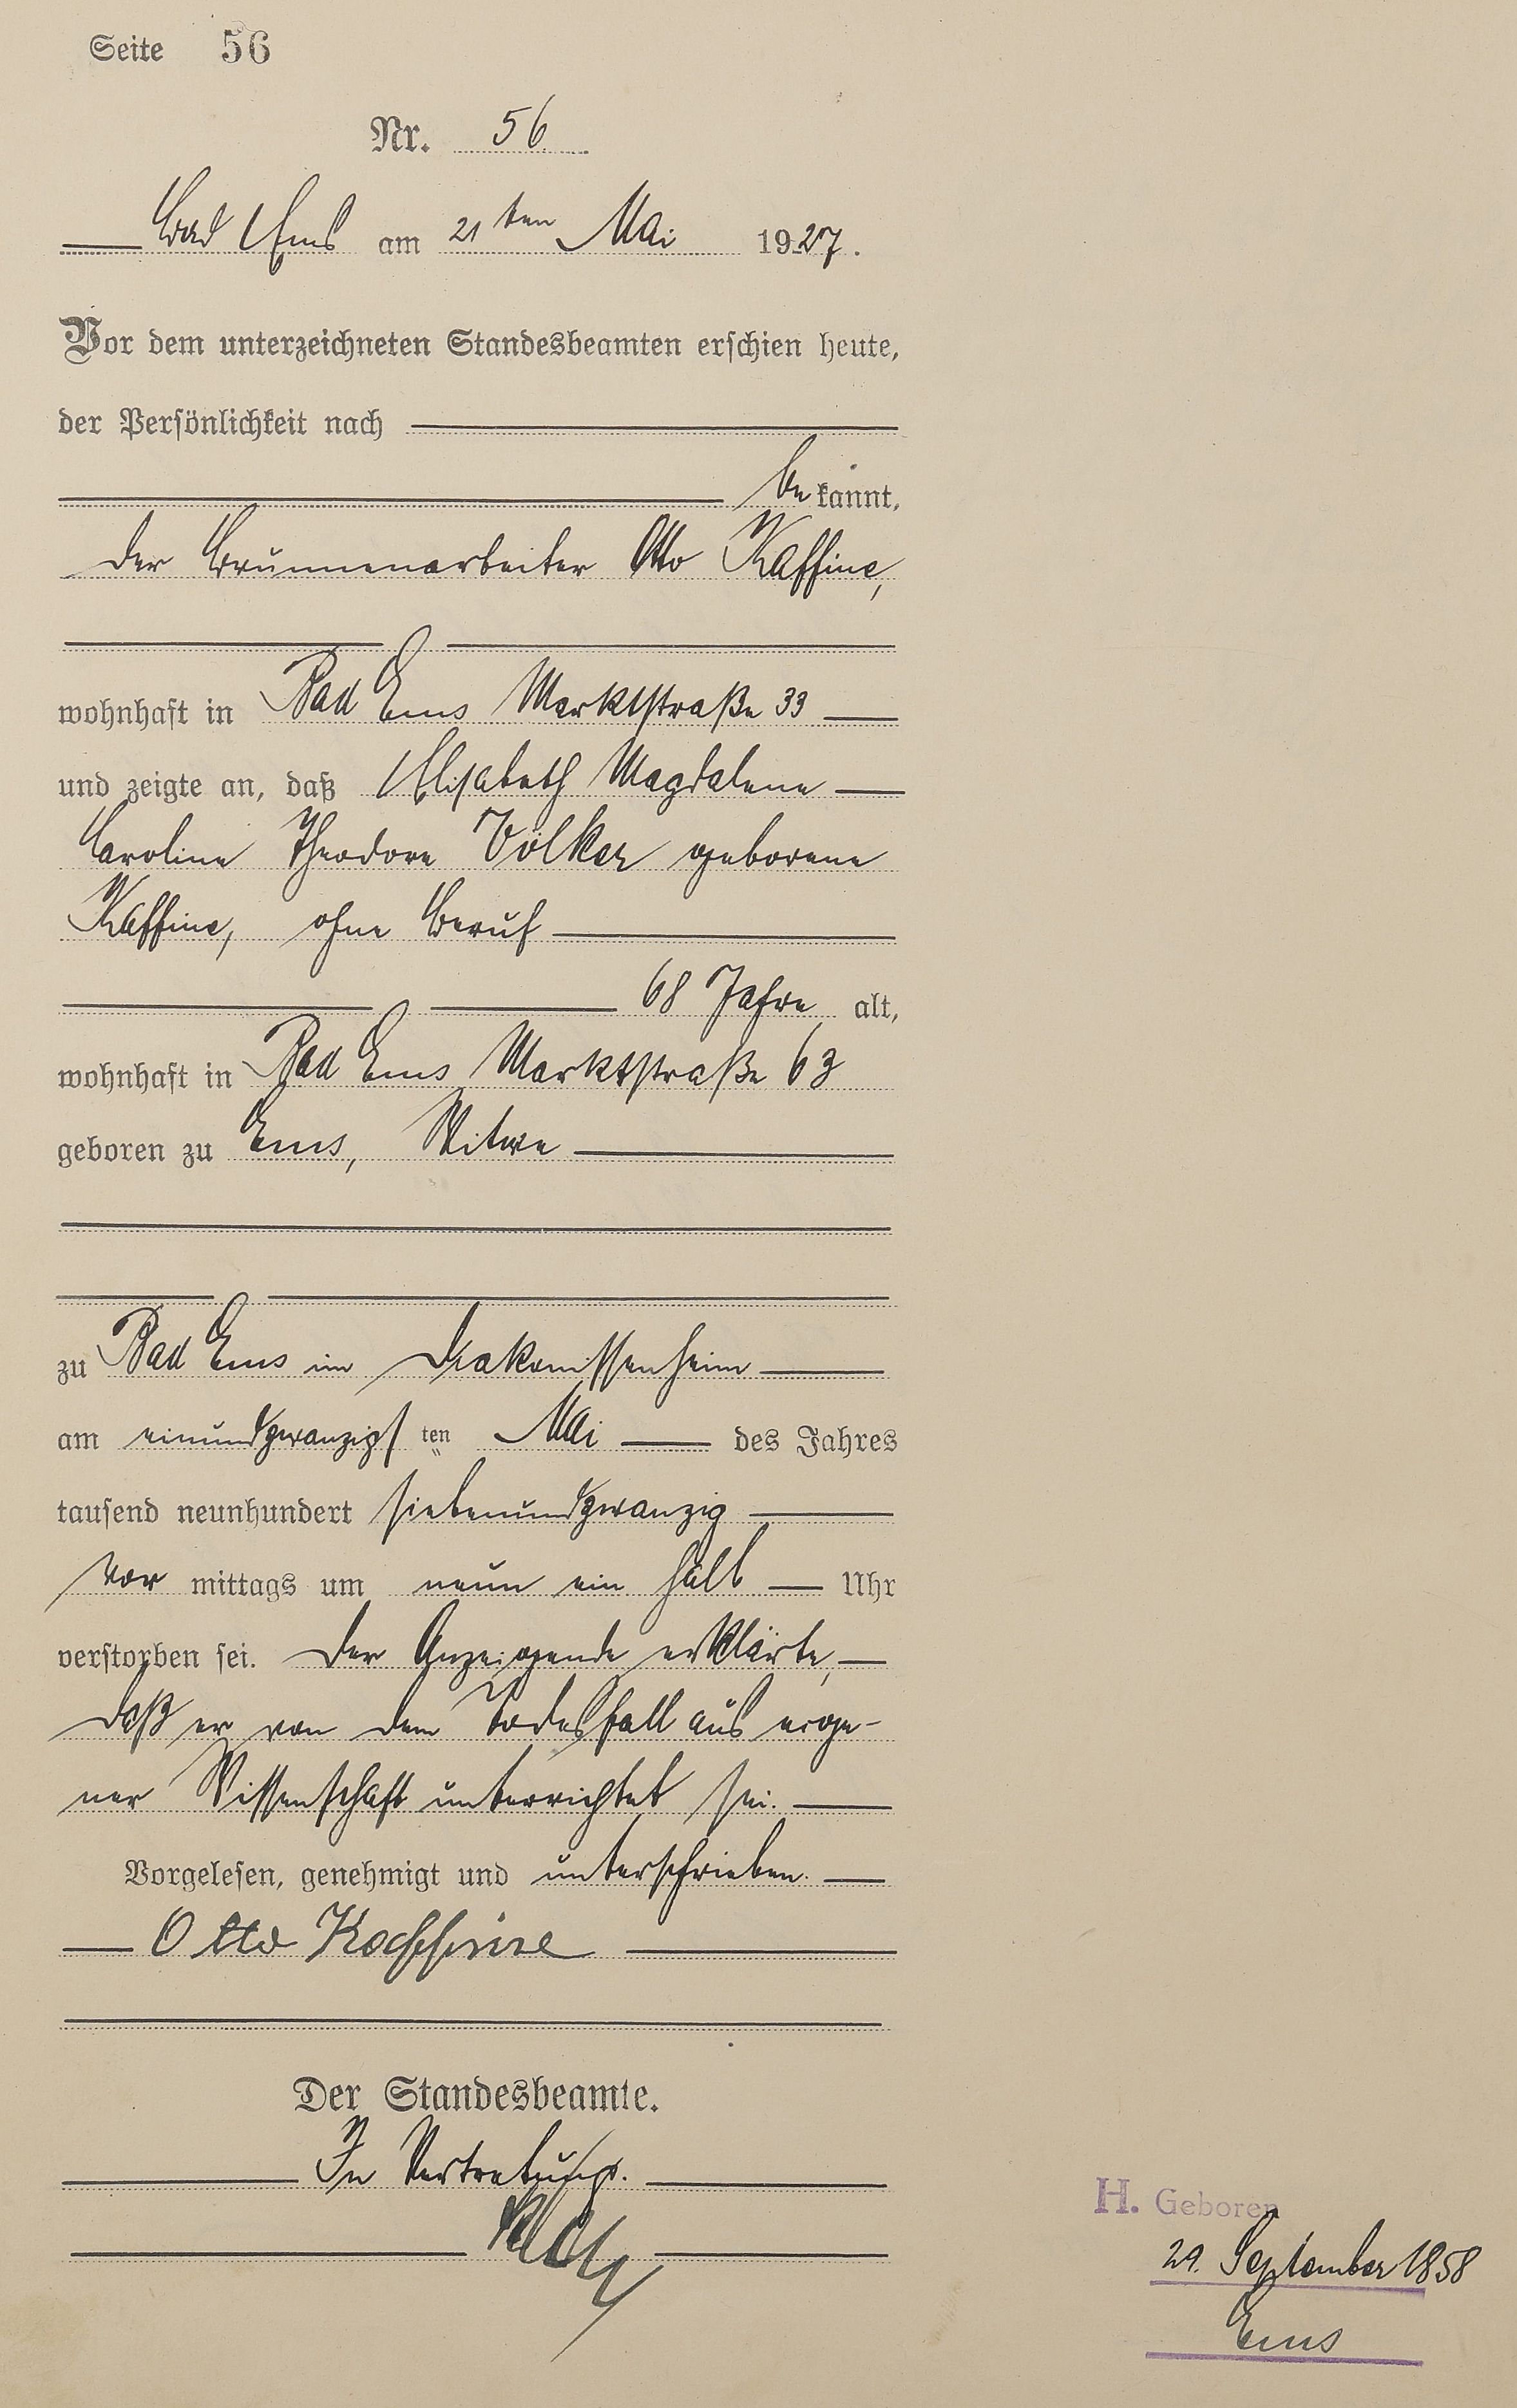 Seite 56
Nr. 56
Bad Ems am 21ten Mai 1927.
Vor dem unterzeichneten Standesbeamten erschien heute,
der Persönlichkeit nach
be kannt,
der Brunnenarbeiter Otto Kaffine,
wohnhaft in Bad Ems Marktstraße 33
und zeigte an, daß Elisabeth Magdalene
Caroline Theodore Völker geborene
Kaffine, ohne Beruf
68 Jahre alt,
wohnhaft in Bad Ems Marktstraße 63
geboren zu Ems, Witwe
zu Bad Ems im Diakonissenheim
am einundzwanzigsten Mai des Jahres
tausend neunhundert siebenundzwanzig
vor mittags um neun ein halb Uhr
verstorben sei. Der Anzeigende erklärte,
daß er von dem Todesfall aus eige-
ner Wissenschaft unterrichtet sei.
Vorgelesen, genehmigt und unterschrieben.
Otto Kaffine
Der Standesbeamte.
In Vertretung.
H. Geboren
29. September 1858
Ems